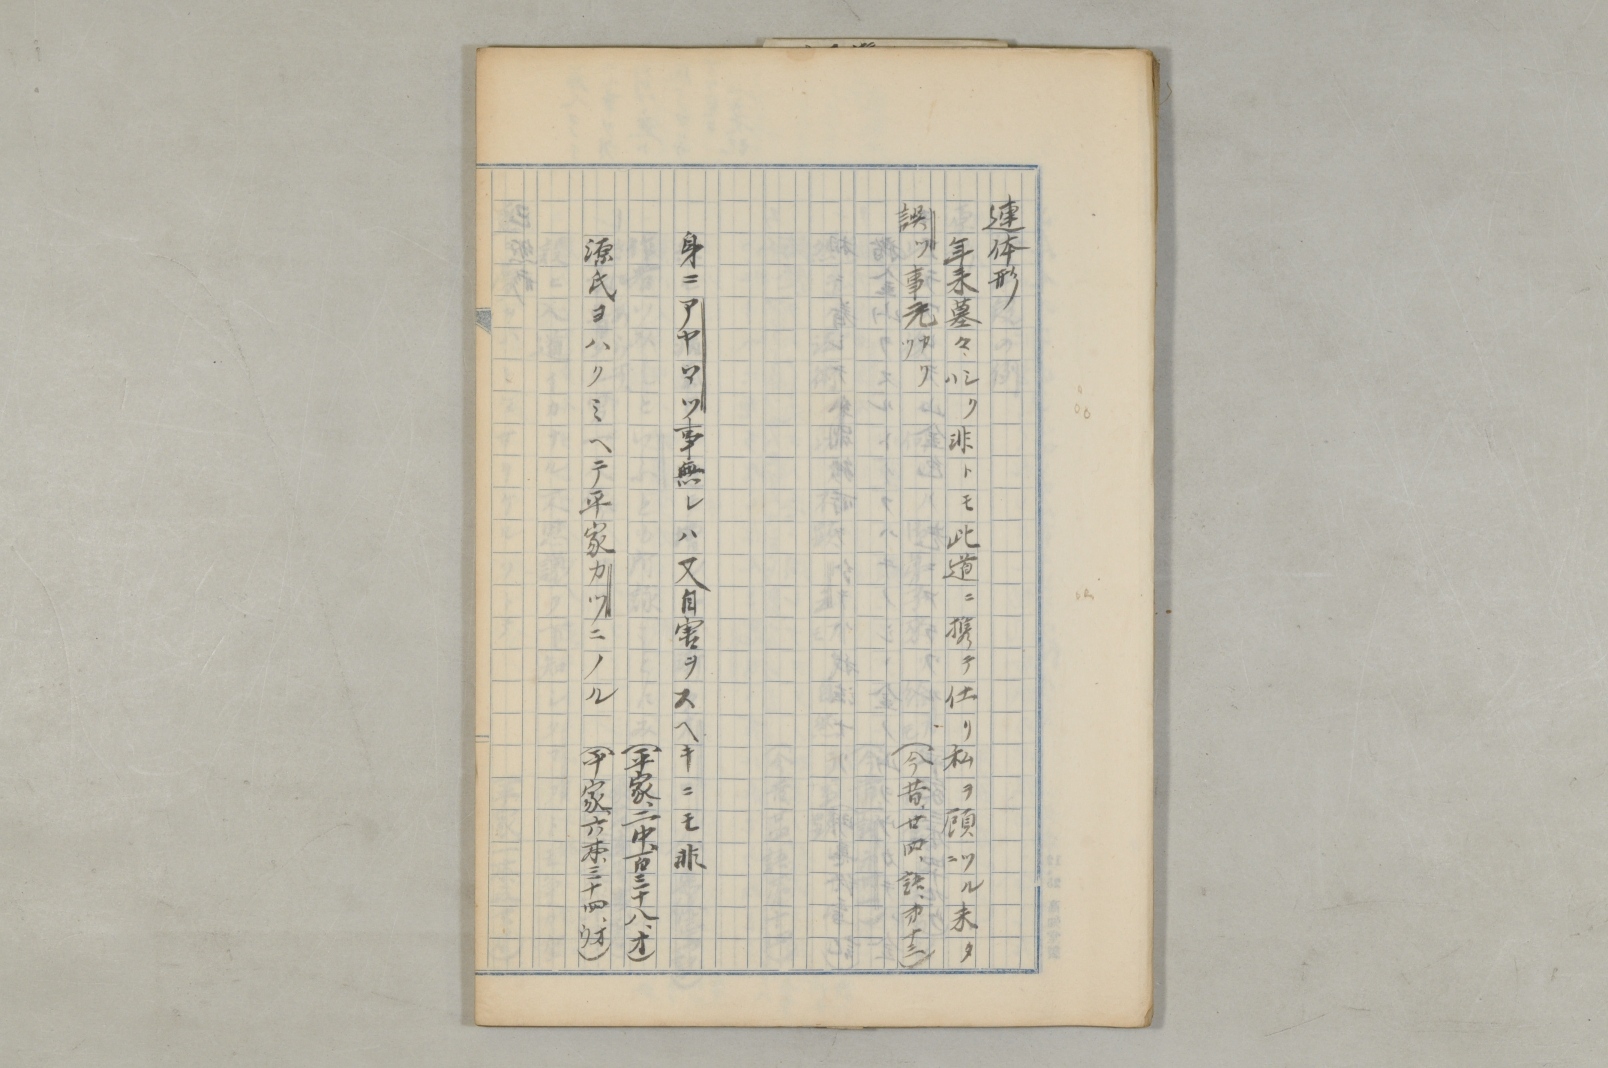 連体形
年来墓々シクハ非トモ此道ニ携テ仕リ私ヲ顧ニツル未タ
誤ツ事无カツリ
(今昔、廿四、語、才十三)
身ニアヤマツ事無レハ又自害ヲスヘキニモ非
(平家、二中、百三十八、オ)
源氏ヨハクミヘテ平家カツニノル
(平家、六本、三十四、オウ)